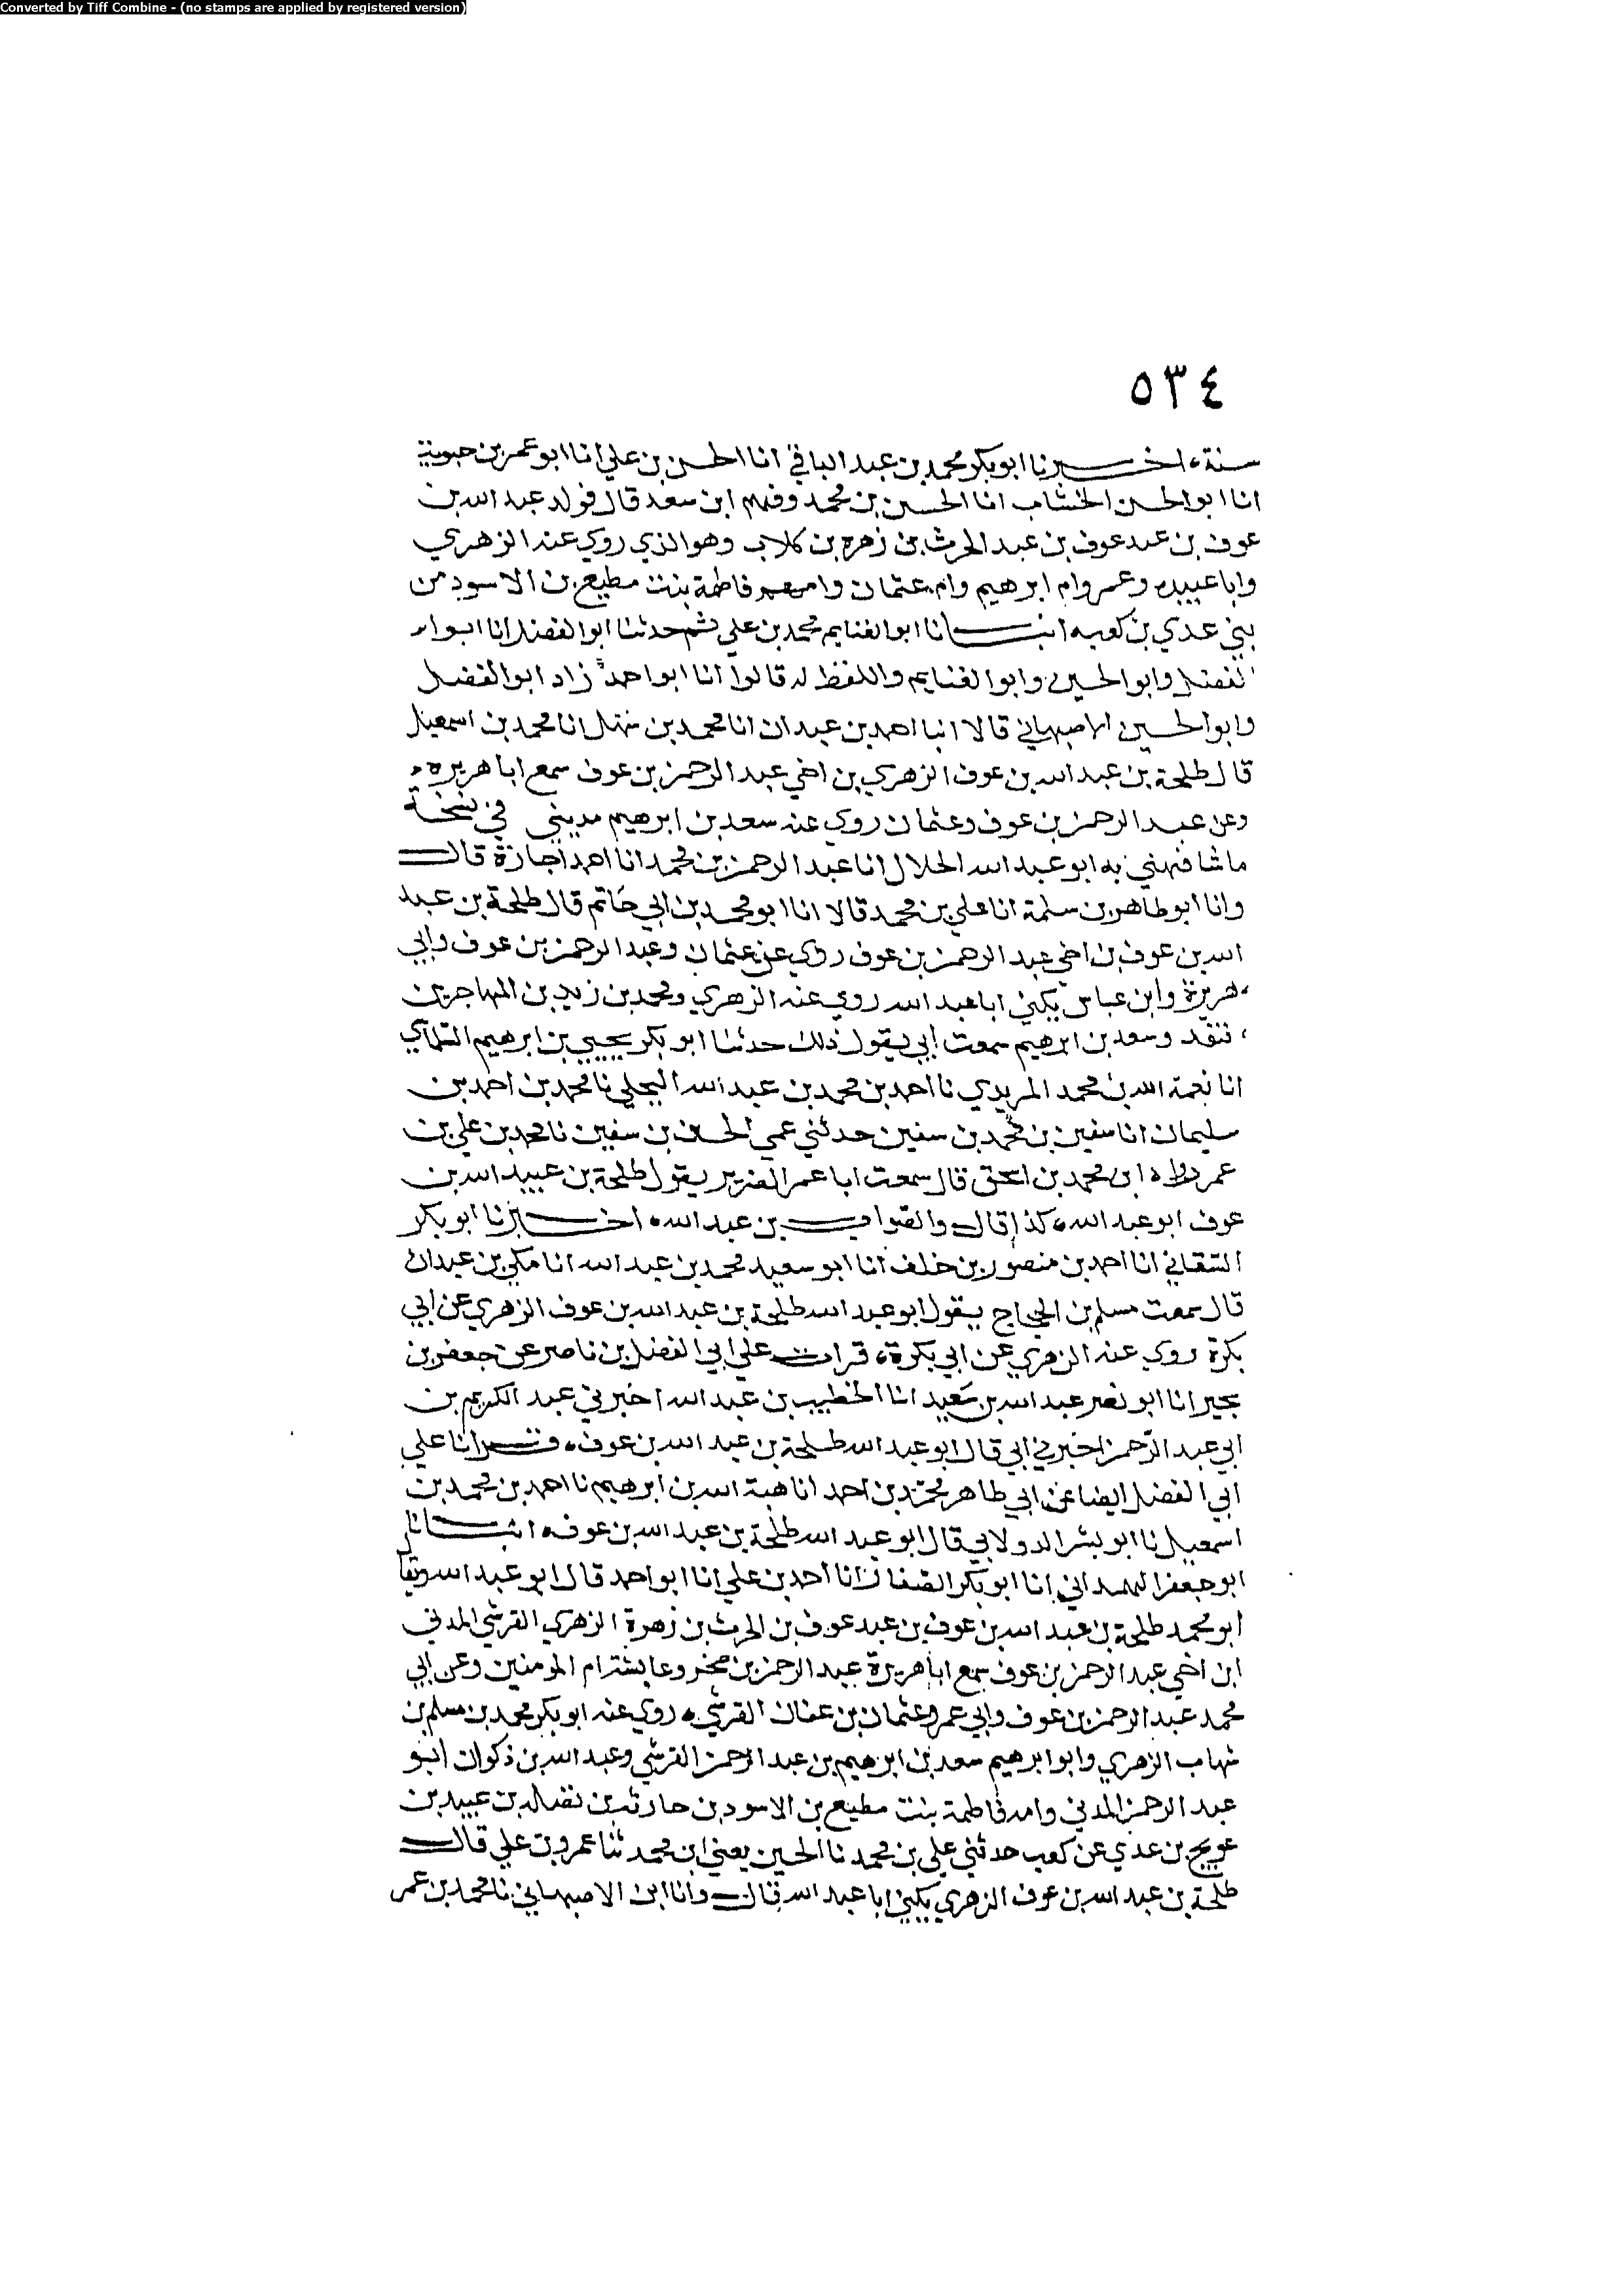 Converted by Tiff Combine - (no stamps are applied by registered version)
٥٣٤
سنة، اخبرنا ابو بكر محمد بن عبد الباقي انا الحسن بن علي انا ابو عمر بن حيوية
انا ابو الحسن الخشاب انا الحسين بن محمد وفهم ابن سعد قال فولد عبد الله بن
عوف بن عبد عوف بن عبد الحرث بن زهره بن كلاب وهو الذي روي عنه الزهري
وابا عبيده وعمر وام ابرهيم وام عثمان وامهم فاطمة بنت مطيع بن الاسود من
بني عدي بن كعب انبانا ابو الغنايم محمد بن علي ثم حدثنا ابو الفضل انا ابوا
لفضل وابو الحسين وابو الغنايم واللفظ له قالوا انا ابو احمد زاد ابو الفضل
وابو الحسين الاصبهاني قالا انبا احمد بن عبدان انا محمد بن سهل انا محمد بن اسمعيل
قال طلحة بن عبد الله بن عوف الزهري بن اخي عبد الرحمن بن عوف سمع ابا هريره
وعن عبد الرحمن بن عوف وعثمان روي عنه سعد بن ابرهيم مديني في نسخة
ما شافهني به ابو عبد الله الخلال انا عبد الرحمن بن محمد انا احمد اجازة قال
وانا ابو طاهر بن سلمة انا علي بن محمد قالا انا ابو محمد بن ابي حاتم قال طلحة بن عبد
الله بن عوف بن اخي عبد الرحمن بن عوف روي عن عثمان وعبد الرحمن بن عوف وابي
هريرة وابن عباس يكني ابا عبد الله روي عنه الزهري ومحمد بن زيد بن المهاجر بن
قنفد وسعد بن ابرهيم سمعت ابي يقول ذلك حدثنا ابو بكر يحيي بن ابرهيم السلماسي
انا نعمة الله بن محمد المريدي نا احمد بن محمد بن عبد الله البجلي نا محمد بن احمد بن
سليمان انا سفين بن محمد بن سفين حدثني عمي الحسن بن سفين نا محمد بن علي بن
عمر ابن محمد بن اسحق قال سمعت ابا عمر الضرير يقول طلحة بن عبيد الله بن
عوف ابو عبد الله، كذا قال والصواب بن عبد الله، اخبرنا ابو بكر
الشقاني انا احمد بن منصور بن خلف انا ابو سعيد محمد بن عبد الله انا مكي بن عبدان
قال سمعت مسلم بن الحجاج يقول ابو عبد الله طلحة بن عبد الله بن عوف الزهري عن ابي
بكرة روي عنه الزهري عن ابي بكرة، قرات علي ابي الفضل بن ناصر عن جعفر بن
يحيي انا ابو نصر عبد الله بن سعيد انا الخطيب بن عبد الله اخبرني عبد الكريم بن
ابي عبد الرحمن اخبرني ابي قال ابو عبد الله طلحة بن عبد الله بن عوف، قرانا علي
ابي الفضل ايضا عن ابي طاهر محمد بن احمد انا هبة الله بن ابرهيم نا احمد بن محمد بن
اسمعيل نا ابو بشر الدولابي قال ابو عبد الله طلحة بن عبد الله بن عوف، انبانا
ابو جعفر الهمداني انا ابو بكر الصفار انا احمد بن علي انا ابو احمد قال ابو عبد الله ويقا
ابو محمد طلحة بن عبد الله بن عوف بن عبد عوف بن الحرث بن زهرة الزهري القرشي المدني
ابن اخي عبد الرحمن بن عوف سمع ابا هريرة عبد الرحمن بن صخر وعايشة ام المومنين وعن ابي
محمد عبد الرحمن بن عوف وابي عمرو عثمان بن عفان القرشي، روي عنه ابو بكر محمد بن مسلم بن
شهاب الزهري وابو ابرهيم سعد بن ابرهيم بن عبد الرحمن القرشي وعبد الله بن ذكوان ابو
عبد الرحمن المدني وامه فاطمة بنت مطيع بن الاسود بن حارثة بن نضله بن عبيد بن
عويج بن عدي عن كعب حدثني علي بن محمد نا الحسين يعني ابن محمد ثنا عمرو بن علي قال
طلحة بن عبد الله بن عوف الزهري يكني ابا عبد الله قال وانا ابن الاصبهاني نا محمد بن عمر